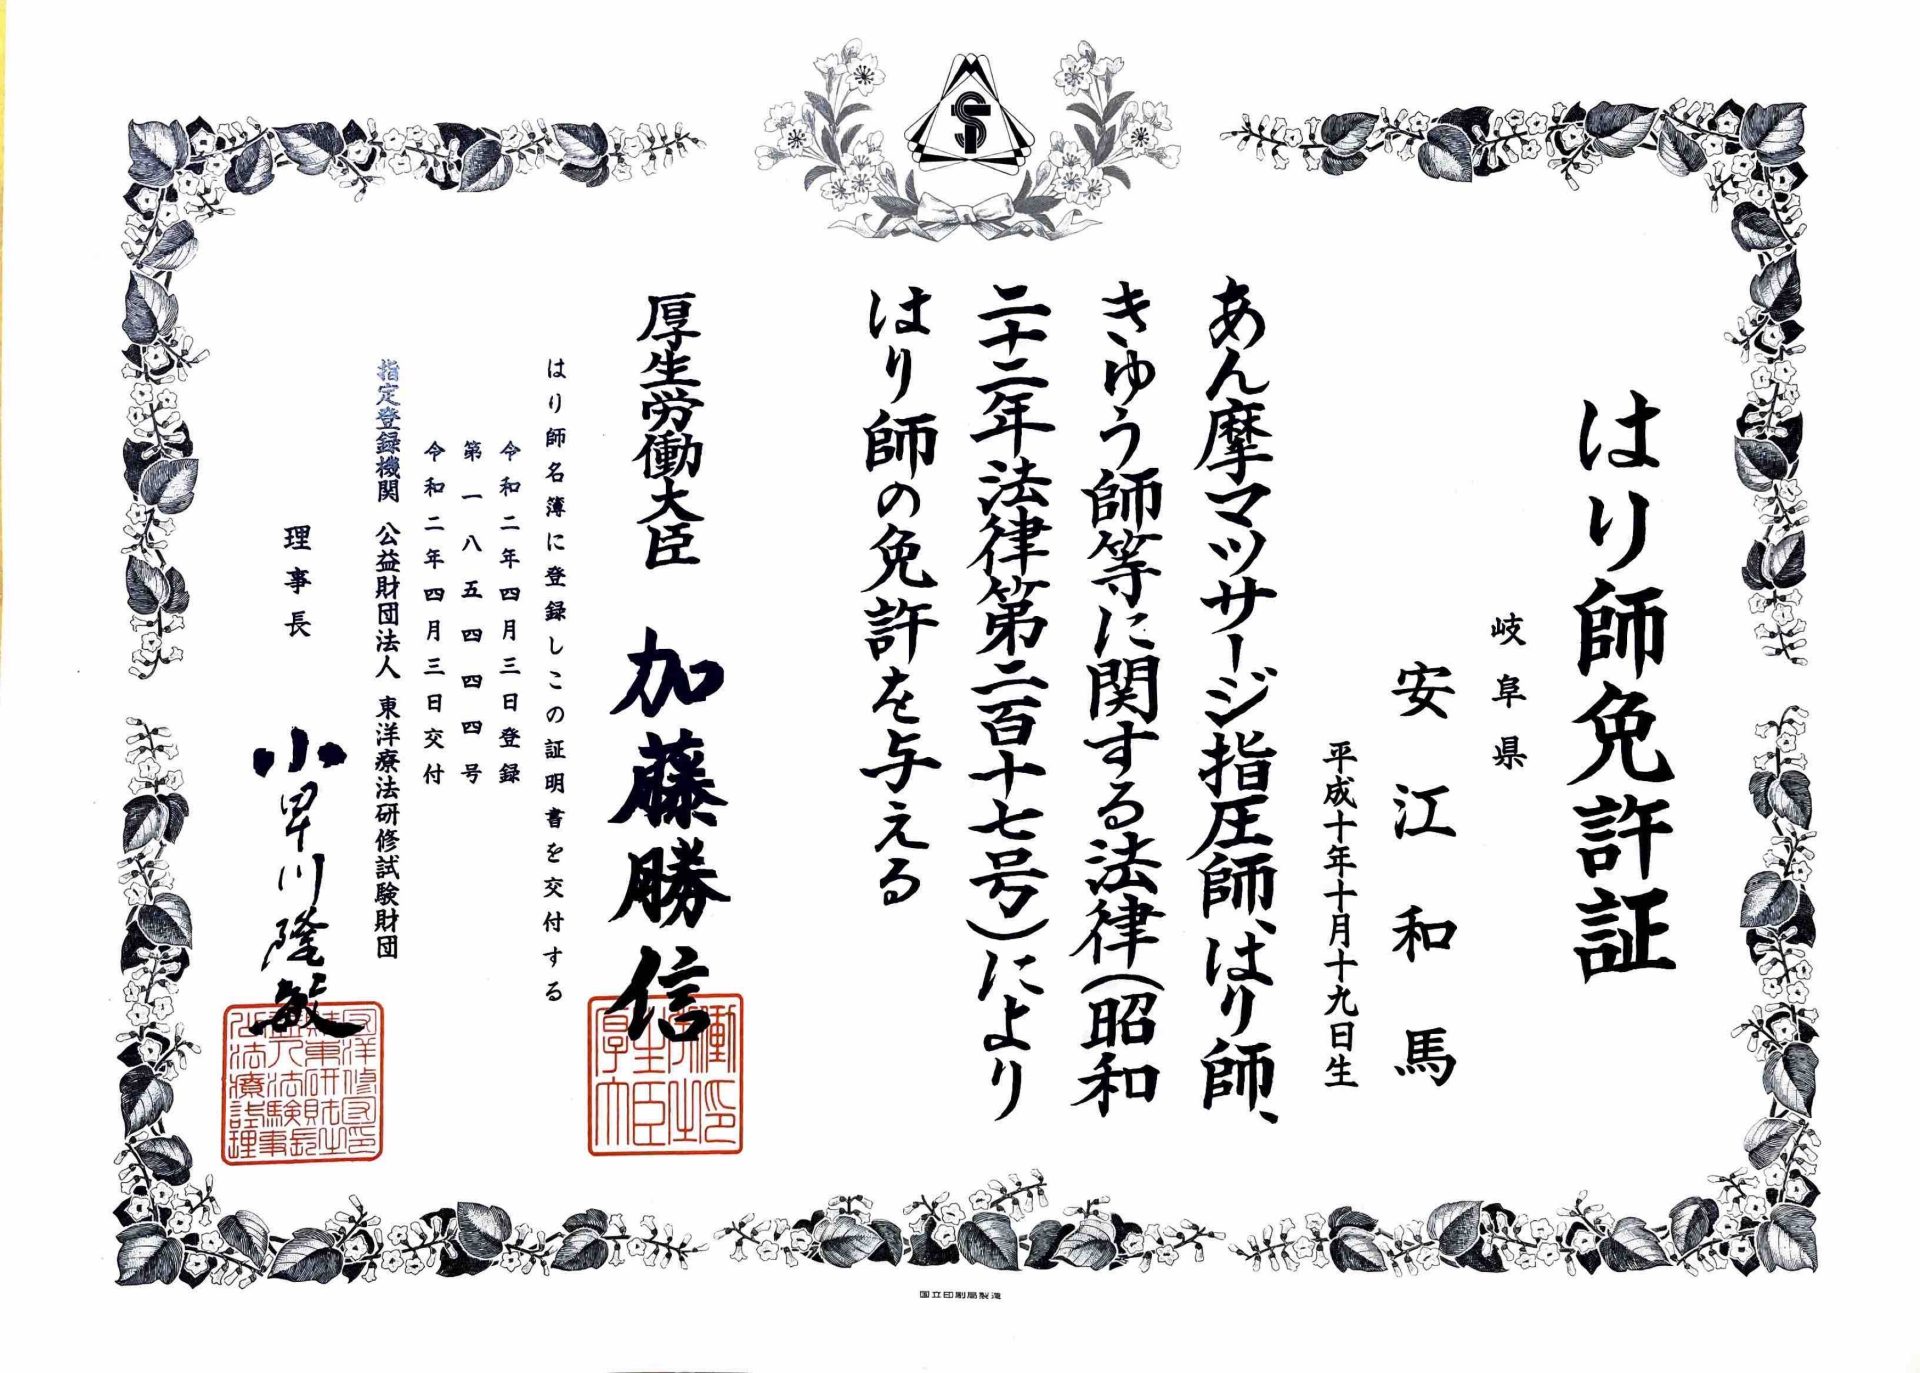 はり師免許証
岐阜県
安江和馬
平成十年十月十九日生
あん摩マツサージ指圧師、はり師、
きゆう師等に関する法律(昭和
二十二年法律第二百十七号)により
はり師の免許を与える
厚生労働大臣 加藤勝信
はり師名簿に登録しこの証明書を交付する
令和二年四月三日登録
第一八五四四四号
令和二年四月三日交付
指定登録機関 公益財団法人 東洋療法研修試験財団
理事長 小早川隆敏
国立印刷局製造